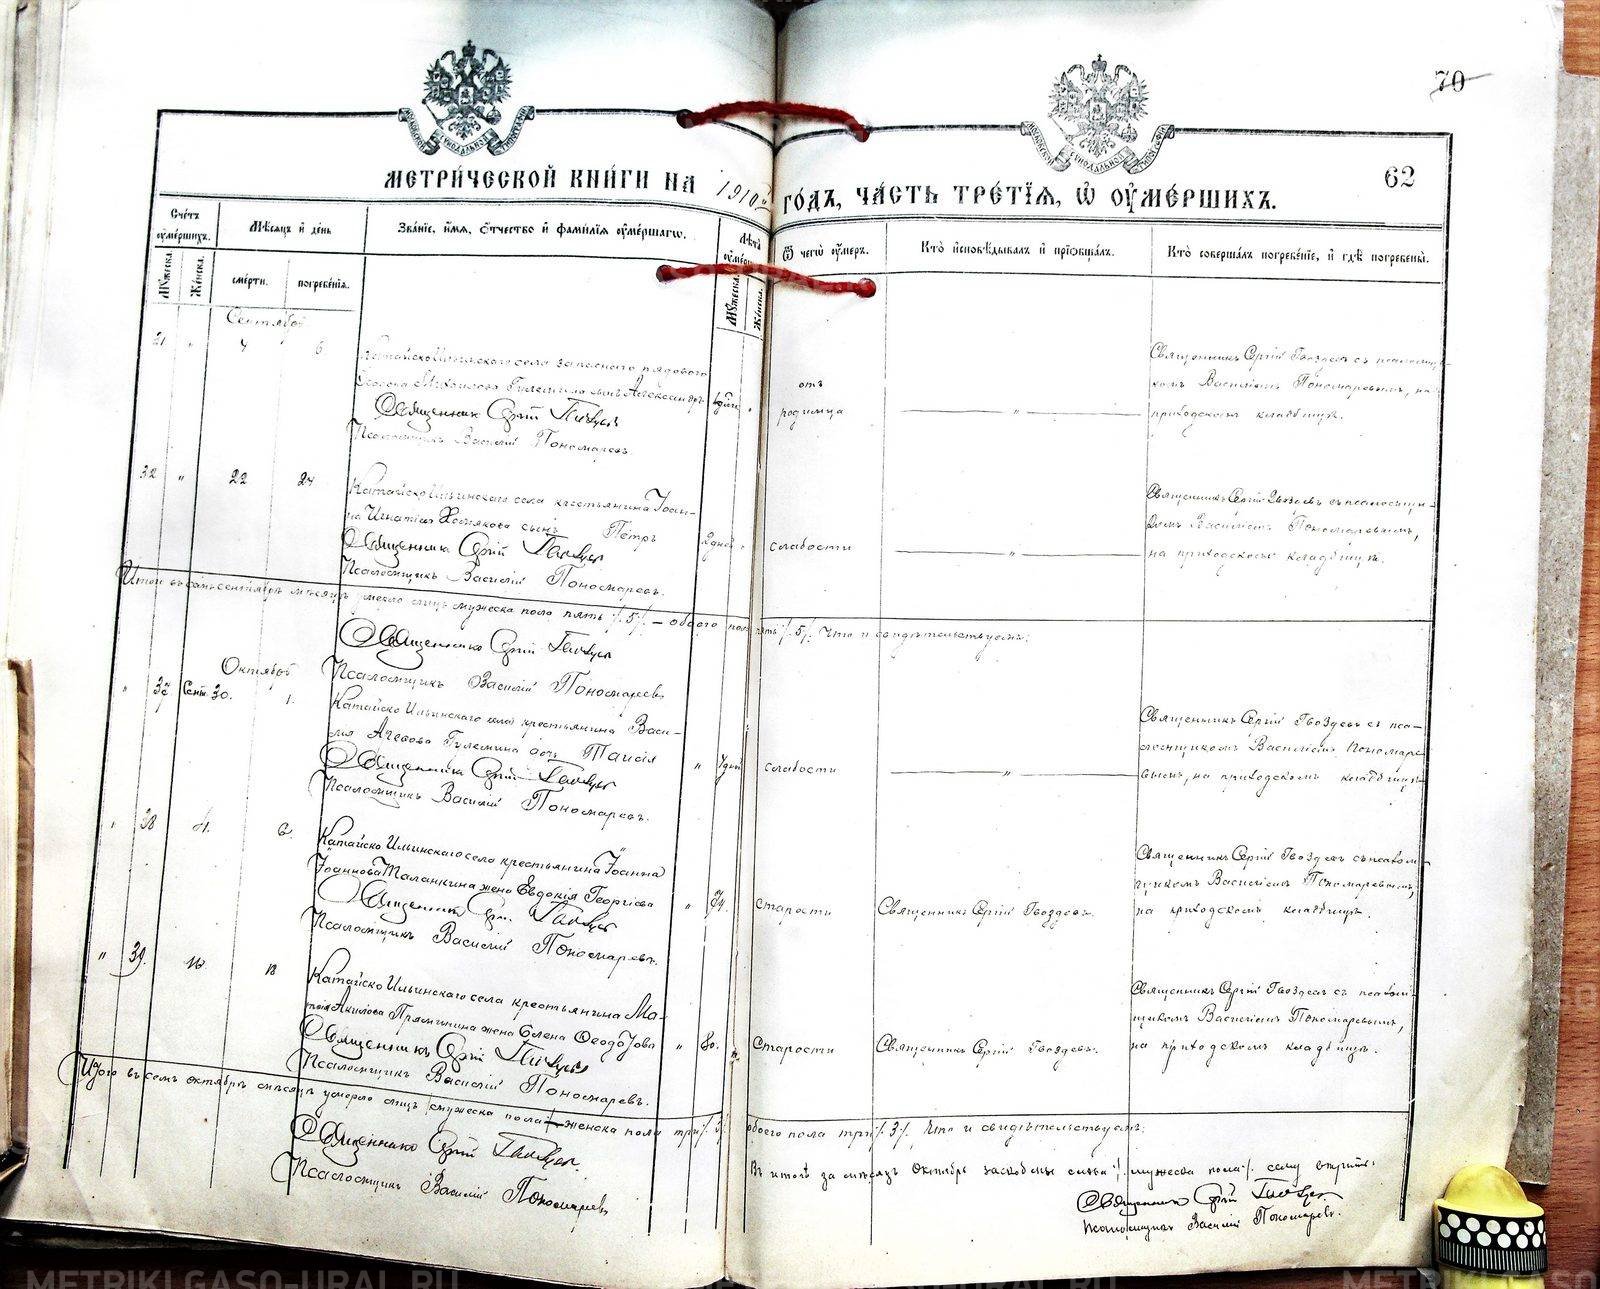 70
62
МЕТРИЧЕСКОЙ КНИГИ НА 1910 й ГОДЪ, ЧАСТЬ ТРЕТІЯ, Ѿ ОУМЕРШИХЪ.
Счетъ оумершихъ.
Мѣсяцъ и день
Званіе, имя, отчество и фамилія оумершагѡ.
Лѣта
Ѿ чегѡ оумеръ.
Кто исповѣдывалъ и пріобщалъ.
Кто совершалъ погребеніе, и гдѣ погребены.
Мужеска.
Женска.
смерти.
погребенія.
Мужеска.
Женска.
Сентябрь
4 6
Катайско Ильинскаго села запаснаго рядового
сынъ Александръ
Священникъ Сергій Гвоздевъ
Псаломщикъ Василій Пономаревъ.
отъ
родимца
Священникъ Сергій Гвоздевъ съ псаломщи-
комъ Василіемъ Пономаревымъ, на
приходскомъ кладбищѣ.
32 " 22 24
Катайско Ильинскаго села крестьянина Іоан-
на Игнатіева Хомякова сынъ Петръ
Священникъ Сергій Гвоздевъ
Псаломщикъ Василій Пономаревъ.
2 дней
слабости
Священникъ Сергій Гвоздевъ съ псаломщи-
комъ Василіемъ Пономаревымъ,
на приходскомъ кладбищѣ.
Итого въ семъ сентябрѣ мѣсяцѣ умерло лицъ мужеска пола пять /.5/. — обоего пола пять /.5/. Что и свидѣтельствуемъ:
Священникъ Сергій Гвоздевъ
Псаломщикъ Василій Пономаревъ
Октябрь
" 37 Сент. 30. 1.
Катайско Ильинскаго села крестьянина Васи-
лія дочь Таисія
Священникъ Сергій Гвоздевъ
Псаломщикъ Василій Пономаревъ.
слабости
Священникъ Сергій Гвоздевъ съ пса-
ломщикомъ Василіемъ Пономаре-
вымъ, на приходскомъ кладбищѣ
" 38 4. 6.
Катайско Ильинскаго села крестьянина Іоанна
Іоаннова Таланкина жена Евдокія Георгіева
Священникъ Сергій Гвоздевъ
Псаломщикъ Василій Пономаревъ.
" 74.
Старости
Священникъ Сергій Гвоздевъ.
Священникъ Сергій Гвоздевъ съ псалом-
щикомъ Василіемъ Пономаревымъ,
на приходскомъ кладбищѣ.
" 39.
Катайско Ильинскаго села крестьянина Ма-
жена Елена
Священникъ Сергій Гвоздевъ
Псаломщикъ Василій Пономаревъ.
" 80.
Старости
Священникъ Сергій Гвоздевъ.
Священникъ Сергій Гвоздевъ съ псалом-
щикомъ Василіемъ Пономаревымъ,
на приходскомъ кладбищѣ.
Итого въ семъ октябрѣ мѣсяцѣ умерло лицъ мужеска пола женска пола три /.3/. обоего пола три /.3/. Что и свидѣтельствуемъ:
Священникъ Сергій Гвоздевъ.
Псаломщикъ Василій Пономаревъ
Въ итогѣ за мѣсяцъ Октябрь /. мужеска пола /. сему вѣрить.
Священникъ Сергій Гвоздевъ
Псаломщикъ Василій Пономаревъ.
METRIKI.GASO-URAL.RU
METRIKI.GASO